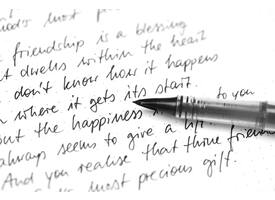 God's most pr
friendship is a blessing
t dwells within the heart
don't know how it happens
n where it gets its start.
out the happiness i to you
always seems to give a lift
And you realise that those frien
most precious gift.